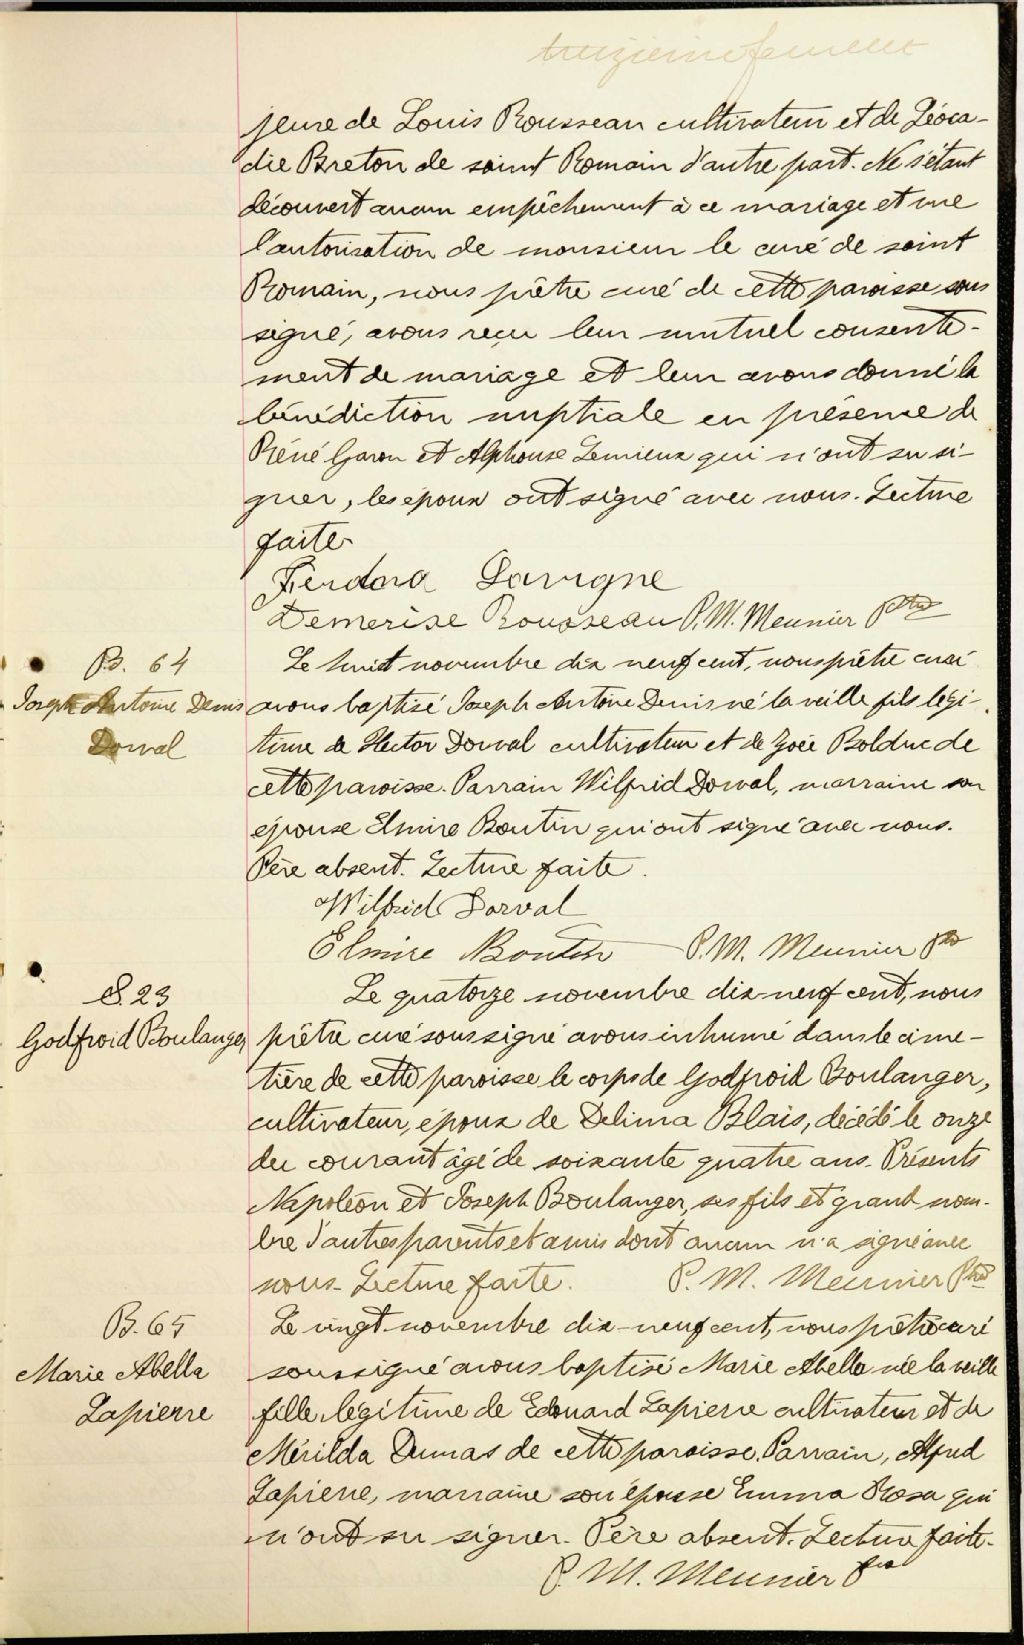 treizième feuillet
jeure de Louis Rousseau cultivateur et de Léoca-
die Breton de saint Romain d'autre part. Ne s'étant
découvert aucun empêchement à ce mariage et vue
l'autorisation de monsieur le curé de saint
Romain, nous prêtre curé de cette paroisse sous
signé, avons reçu leur mutuel consente-
ment de mariage et leur avons donné la
bénédiction nuptiale en présence de
Réné Garon et Alphonse Lemieux qui n'ont su si-
gner, les époux ont signé avec nous. Lecture
faite.
Ferdina Lavigne
Demerise Rousseau P. M. Meunier Ptre
B. 64
Joseph Antoine Denis
Dorval
Le huit novembre dix neuf cent, nous prêtre curé
avons baptisé Joseph Antoine Denis né la veille fils légi-
time de Hector Dorval cultivateur et de Zoée Bolduc de
cette paroisse. Parrain Wilfrid Dorval, marraine son
épouse Elmire Boutin qui ont signé avec nous.
Père absent. Lecture faite.
Wilfrid Dorval
Elmire Boutin P. M. Meunier Ptre
S. 23
Godfroid Boulanger
Le quatorze novembre dix-neuf cent, nous
prêtre curé soussigné avons inhumé dans le cime-
tière de cette paroisse le corps de Godfroid Boulanger,
cultivateur, époux de Delima Blais, décédé le onze
du courant âgé de soixante quatre ans. Présents
Napoléon et Joseph Boulanger, ses fils et grand nom-
bre d'autres parents et amis dont aucun n'a signé avec
nous. Lecture faite. P. M. Meunier Ptre
B. 65
Marie Abella
Lapierre
Le vingt novembre dix-neuf cent, nous prêtre curé
soussigné avons baptisé Marie Abella née la veille
fille légitime de Edouard Lapierre cultivateur et de
Mérilda Dumas de cette paroisse. Parrain, Alfred
Lapierre, marraine son épouse Emma Rosa qui
n'ont su signer. Père absent. Lecture faite.
P. M. Meunier Ptre